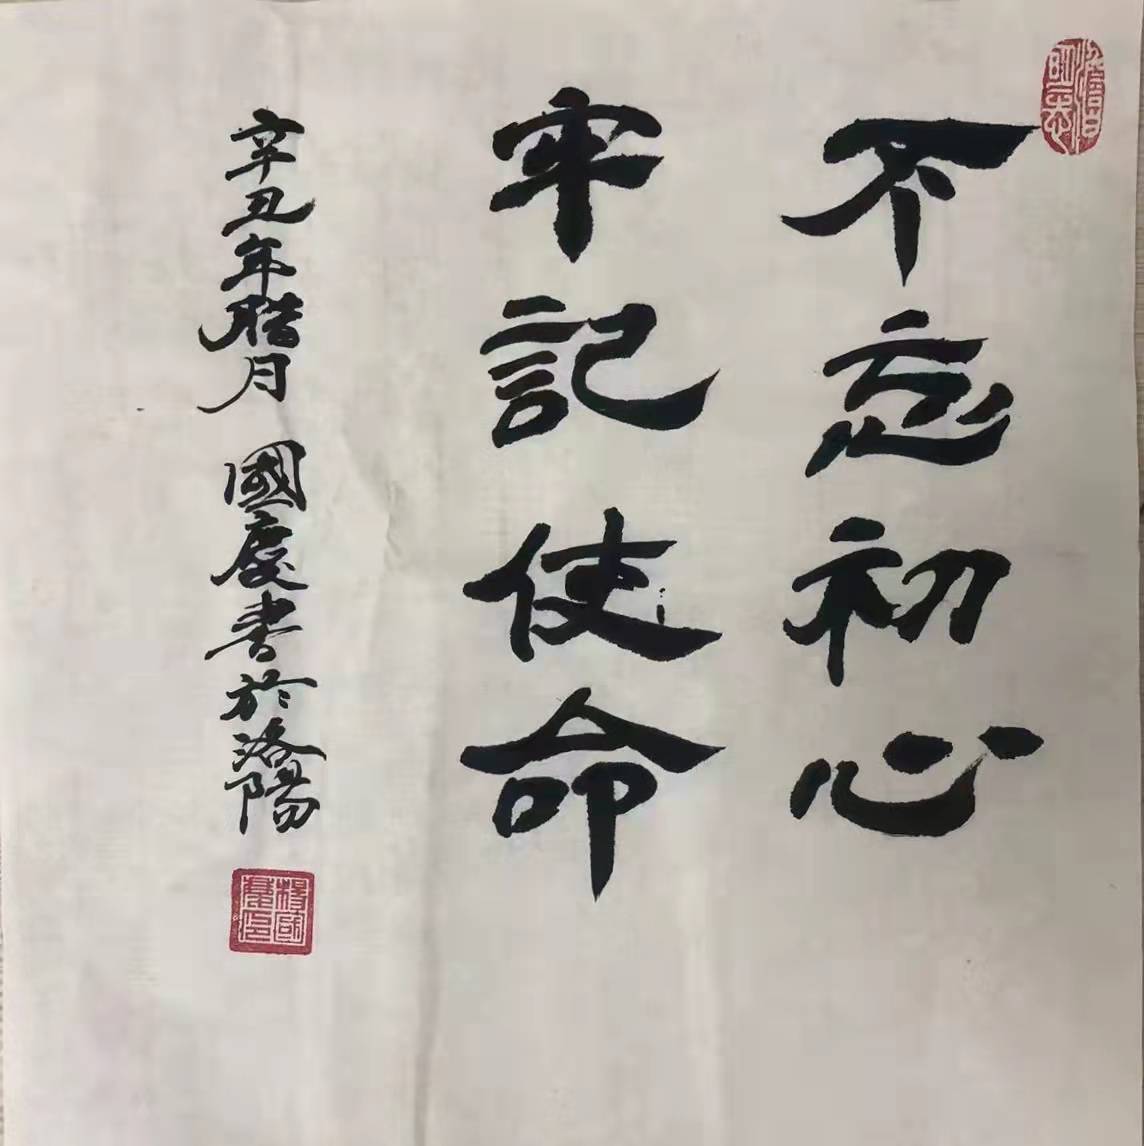 不忘初心
牢記使命
辛丑年腊月 國慶書於洛陽